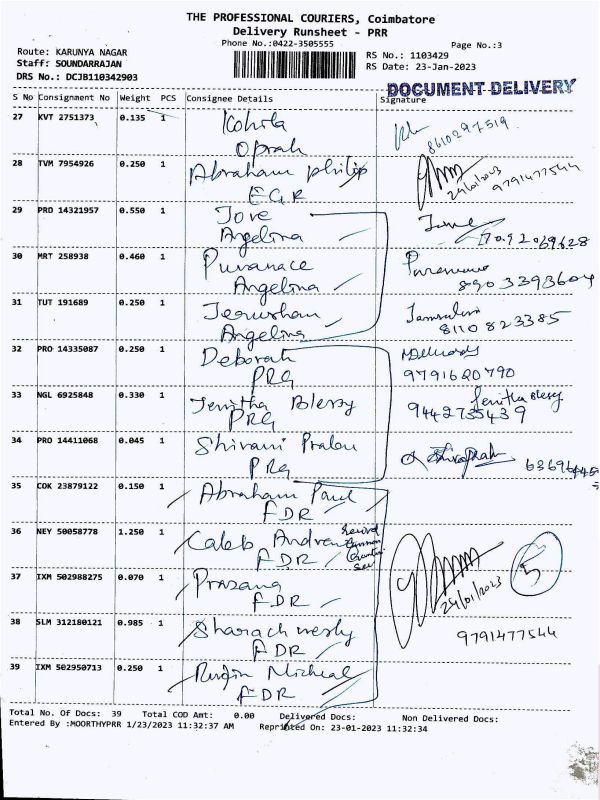 THE PROFESSIONAL COURIERS, Coimbatore
Delivery Runsheet - PRR
Phone No.:0422-3505555
Page No.:3
Route: KARUNYA NAGAR
Staff: SOUNDARRAJAN
DRS No.: DCJB110342903
RS No.: 1103429
RS Date: 23-Jan-2023
DOCUMENT DELIVERY
S No Consignment No Weight PCS Consignee Details Signature
27 KVT 2751373 0.135 1 Kohila
Oprah
8610297519
28 TVM 7954926 0.250 1 Abraham philip
EGR
24/01/2023
9791477544
29 PRO 14321957 0.550 1 Jove
Angelina
7092069628
30 MRT 258938 0.460 1 Puvanace
Angelina
8903393604
31 TUT 191689 0.250 1 Jerusham
Angelina
8110823385
32 PRO 14335087 0.250 1 Deborah
PRG
9791620790
33 NGL 6925848 0.330 1 Jenitha Blessy
PRG
Jenitha Blessy
9442735439
34 PRO 14411068 0.045 1 Shivani
PRG
35 COK 23879122 0.150 1 Abraham Paul
FDR
36 NEY 50058778 1.250 1 Caleb Andrew
FDR
37 IXM 502988275 0.070 1 Prasang
FDR
24/01/2023
5
38 SLM 312180121 0.985 1 Sharach wesly
FDR
9791477544
39 IXM 502950713 0.250 1 Micheal
FDR
Total No. Of Docs: 39 Total COD Amt: 0.00 Delivered Docs: Non Delivered Docs:
Entered By :MOORTHYPRR 1/23/2023 11:32:37 AM Reprinted On: 23-01-2023 11:32:34